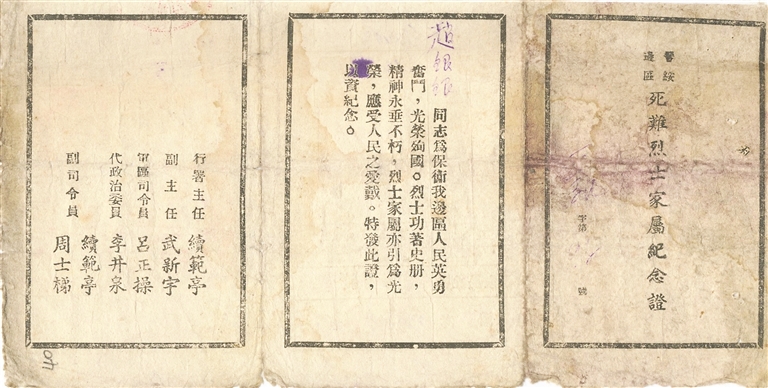 晉綏
邊區
死難烈士家屬紀念證
字第 號
趙銀銀
同志爲保衛我邊區人民英勇
奮鬥，光榮殉國。烈士功著史册，
精神永垂不朽，烈士家屬亦引爲光
榮，應受人民之愛戴。特發此證，
以資紀念。
行署主任 續範亭
副主任 武新宇
軍區司令員 呂正操
代政治委員 李井泉
副司令員 續範亭
周士梯
40